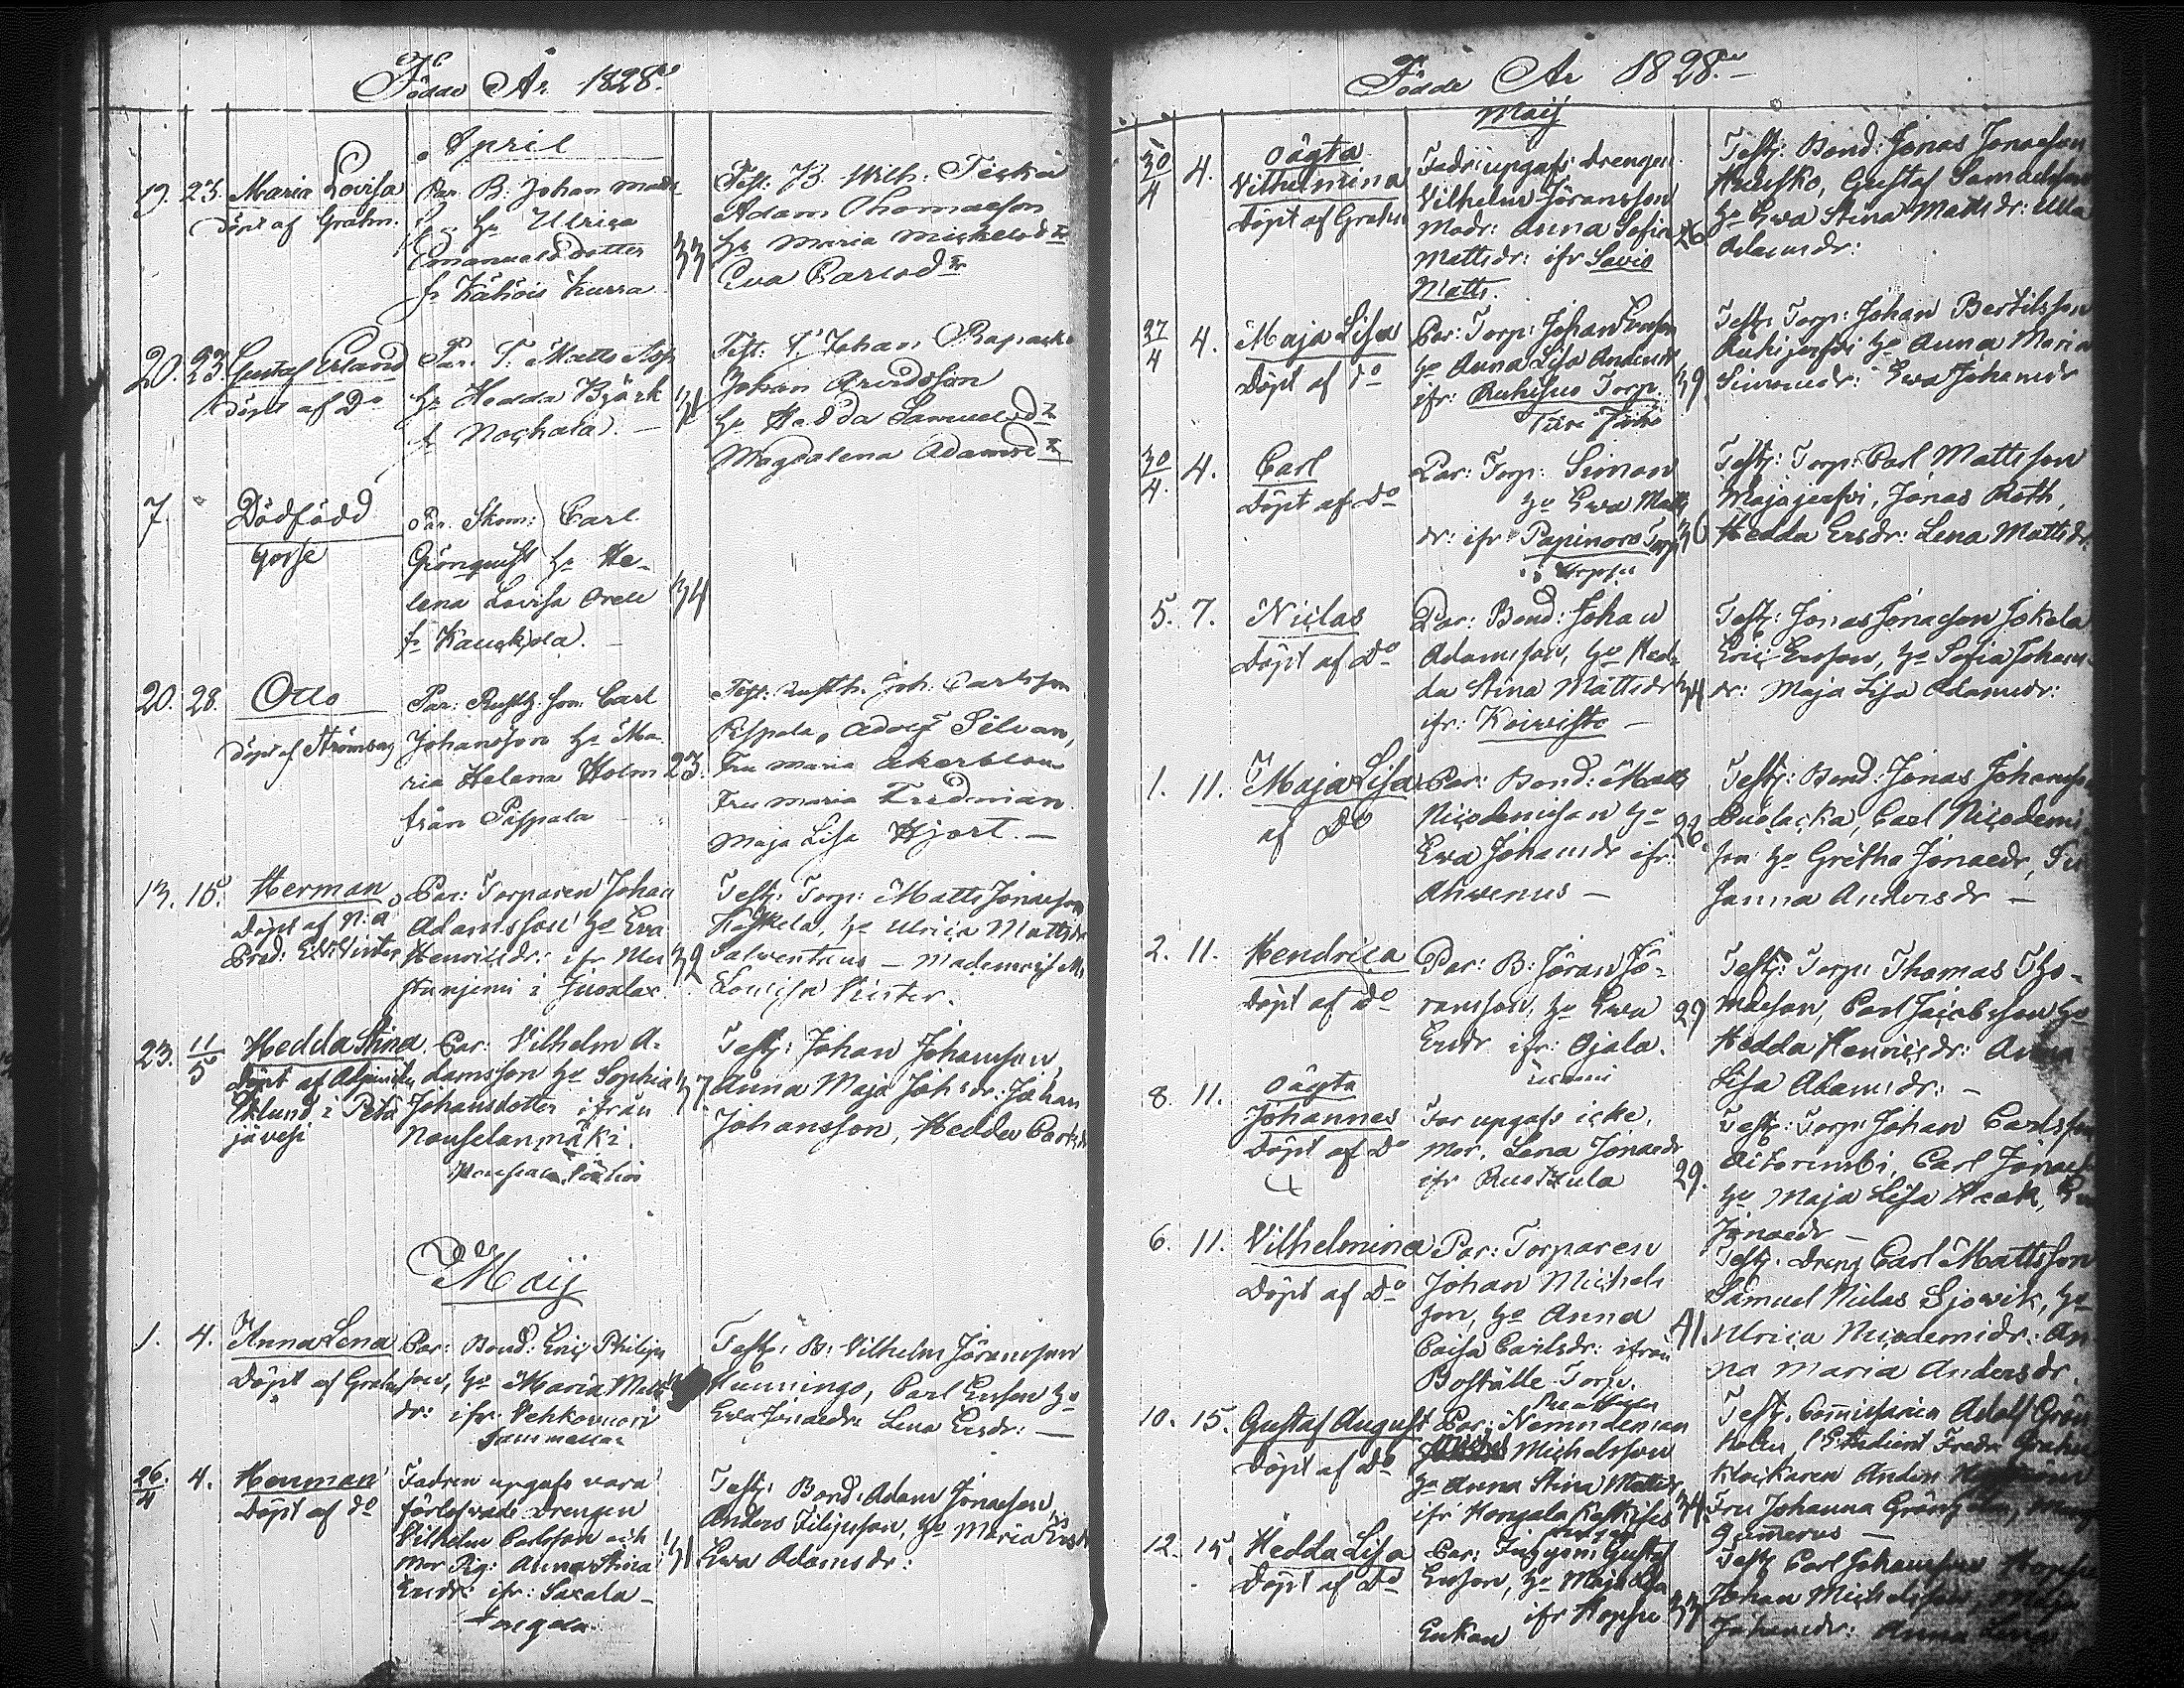 Födde År 1828.
April
19. 23. Maria Lovisa Par. B. Johan Matts
Döpt af Grahn. hu Ulrica
Emanuelsdotter
fr Kähöis Kurra
33
Test: B. Wilh.
Adam Thomasson
hu Maria Mickelsdtr
Eva Carlsdtr
20. 23. Gustaf Erland Par. T. Matts
Döpt af Do hu Hedda Björk
fr Nochala.
Test: Johan
Johan Arvidsson
hu Hedda Samuelsdtr
Magdalena Adamsdtr
7. Dödfödd
gosse
Par. Skom: Carl
Grönquist hu He-
lena Lovisa Orell
fr
34
20. 28. Otto
Döpt af
Par: Rusth. son Carl
Johansson hu Ma-
ria Helena Holm
från Pispala
23.
Test: Rusth. Joh. Carlsson
Pispala, Adolf Silvan,
Fru Maria Åkerblom
Fru Maria Fredman
Maja Lisa Hjort.
13. 15. Herman
Döpt af
Par: Torparen Johan
Adamsson hu Eva
Henricsdr: ifr
32
Testj: Torp: Matts Jonasson
hu Ulrica Mattsdr
Lovisa
23. 11/5 Hedda Stina
Döpt af
Eklund i Peta
jävesi
Par: Vilhelm A-
damsson hu Sophia
Johansdotter ifrån
Nouselanmäki.
37
Testj: Johan Johansson,
Anna Maja Johsdr: Johan
Johansson, Hedda Carlsdr
Maij
1. 4. Anna Lena
Döpt af Grahn
Par: Bond: Eric Philips
son, hu Maria Matts
dr: ifr Vehkovuori
Testj: B: Vilhelm Jöransson
Hunningo, Carl Ersson hu
Eva Jonaedr Lena Ersdr:
26/4 4. Herman
Döpt af Do
Fadren upgafs vara
förlofvade Drengen
Vilhelm Carlsson och
Mor Pig: Anna Stina
Ersdr: ifr: Saxala
31
Testj: Bond: Adam Jonasson,
Anders Filipsson, hu Maria Ersdr
Ewa Adamsdr:
Födde År 1828.
Maij
30/4 4. oägta
Vilhelmina
Döpt af Grahn
Fadr: upgafs drengen
Vilhelm Jöransson
Modr: Anna Sofia
Mattsdr: ifr Savio
Matts.
26
Testj: Bond: Jonas Jonasson
Gustaf Samuelsson
hu Ewa Stina Mattsdr: Ulla
Adamsdr:
27/4 4. Maja Lisa
Döpt af do
Par: Torp: Johan Ersson
hu Anna Lisa Andersdr
ifr: Torp.
39
Testj: Torp: Johan Bertilsson
hu Anna Maria
Simonsdr: Ewa Johansdr
30/4. 4. Carl
Döpt af Do
Par: Torp: Simon
hu Ewa Matts
dr: ifr: Papinoro Torp
36
Testj: Torp: Carl Mattsson
Majajerfvi, Jonas Roth,
Hedda Ersdr: Lena Mattsdr.
5. 7. Niclas
Döpt af Do
Par: Bond: Johan
Adamsson, hu Hed-
da Stina Mattsdr
ifr: Koivisto
34
Testj: Jonas Jonasson Jokela
Eric Ersson, hu Sofia Johans
dr: Maja Lisa Adamsdr:
1. 11. Maja Lisa
af Do
Par: Bond: Matts
Nicodemisson hu
Ewa Johansdr ifr:
Ahvenus
28.
Testj: Bond: Jonas Johansson
Puolacka, Carl Nicodemi
son hu Gretha Jonaedr, Su
sanna Andersdr
2. 11. Hendrica
Döpt af Do
Par: B: Jöran Jö-
ransson, hu Ewa
Ersdr ifr: Ojala.
29
Testj: Torp: Thomas Tho-
masson, Carl Jacobsson hu
Hedda Henricsdr: Anna
Lisa Adamsdr:
8. 11. oägta
Johannes
Döpt af Do
Far upgafs icke,
Mor, Lena Jonaedr
ifr Rustula
29.
Testj: Torp: Johan Carlsson
Carl Jonas
hu Maja Lisa
Jonaedr
6. 11. Vilhelmina
Döpt af Do
Par: Torparen
Johan Michels
son, hu Anna
Caisa Carlsdr: ifrån
Boställe Torp.
41.
Testj. Dreng Carl Mattsson
Samuel Niclas Sjövik, hu
Ulrica Nicodemidr: An
na Maria Andersdr.
10. 15. Gustaf August
Döpt af Do
Par: Nemndeman
Michelsson
hu Anna Stina Mattsdr
ifr Hongala
34.
Testj. Commissarien Adolf Grön
holm, Studient Fredr Grahn
Klockaren Anders
Fru Johanna Grönholm,
Gummerus
12. 15. Hedda Lisa
Döpt af Do
Par: Gustaf
Ersson, hu Maja Lisa
ifr Hopsu
33
Testj Carl Johansson
Johan Michelsson, Maja
Johansdr: Anna Lena